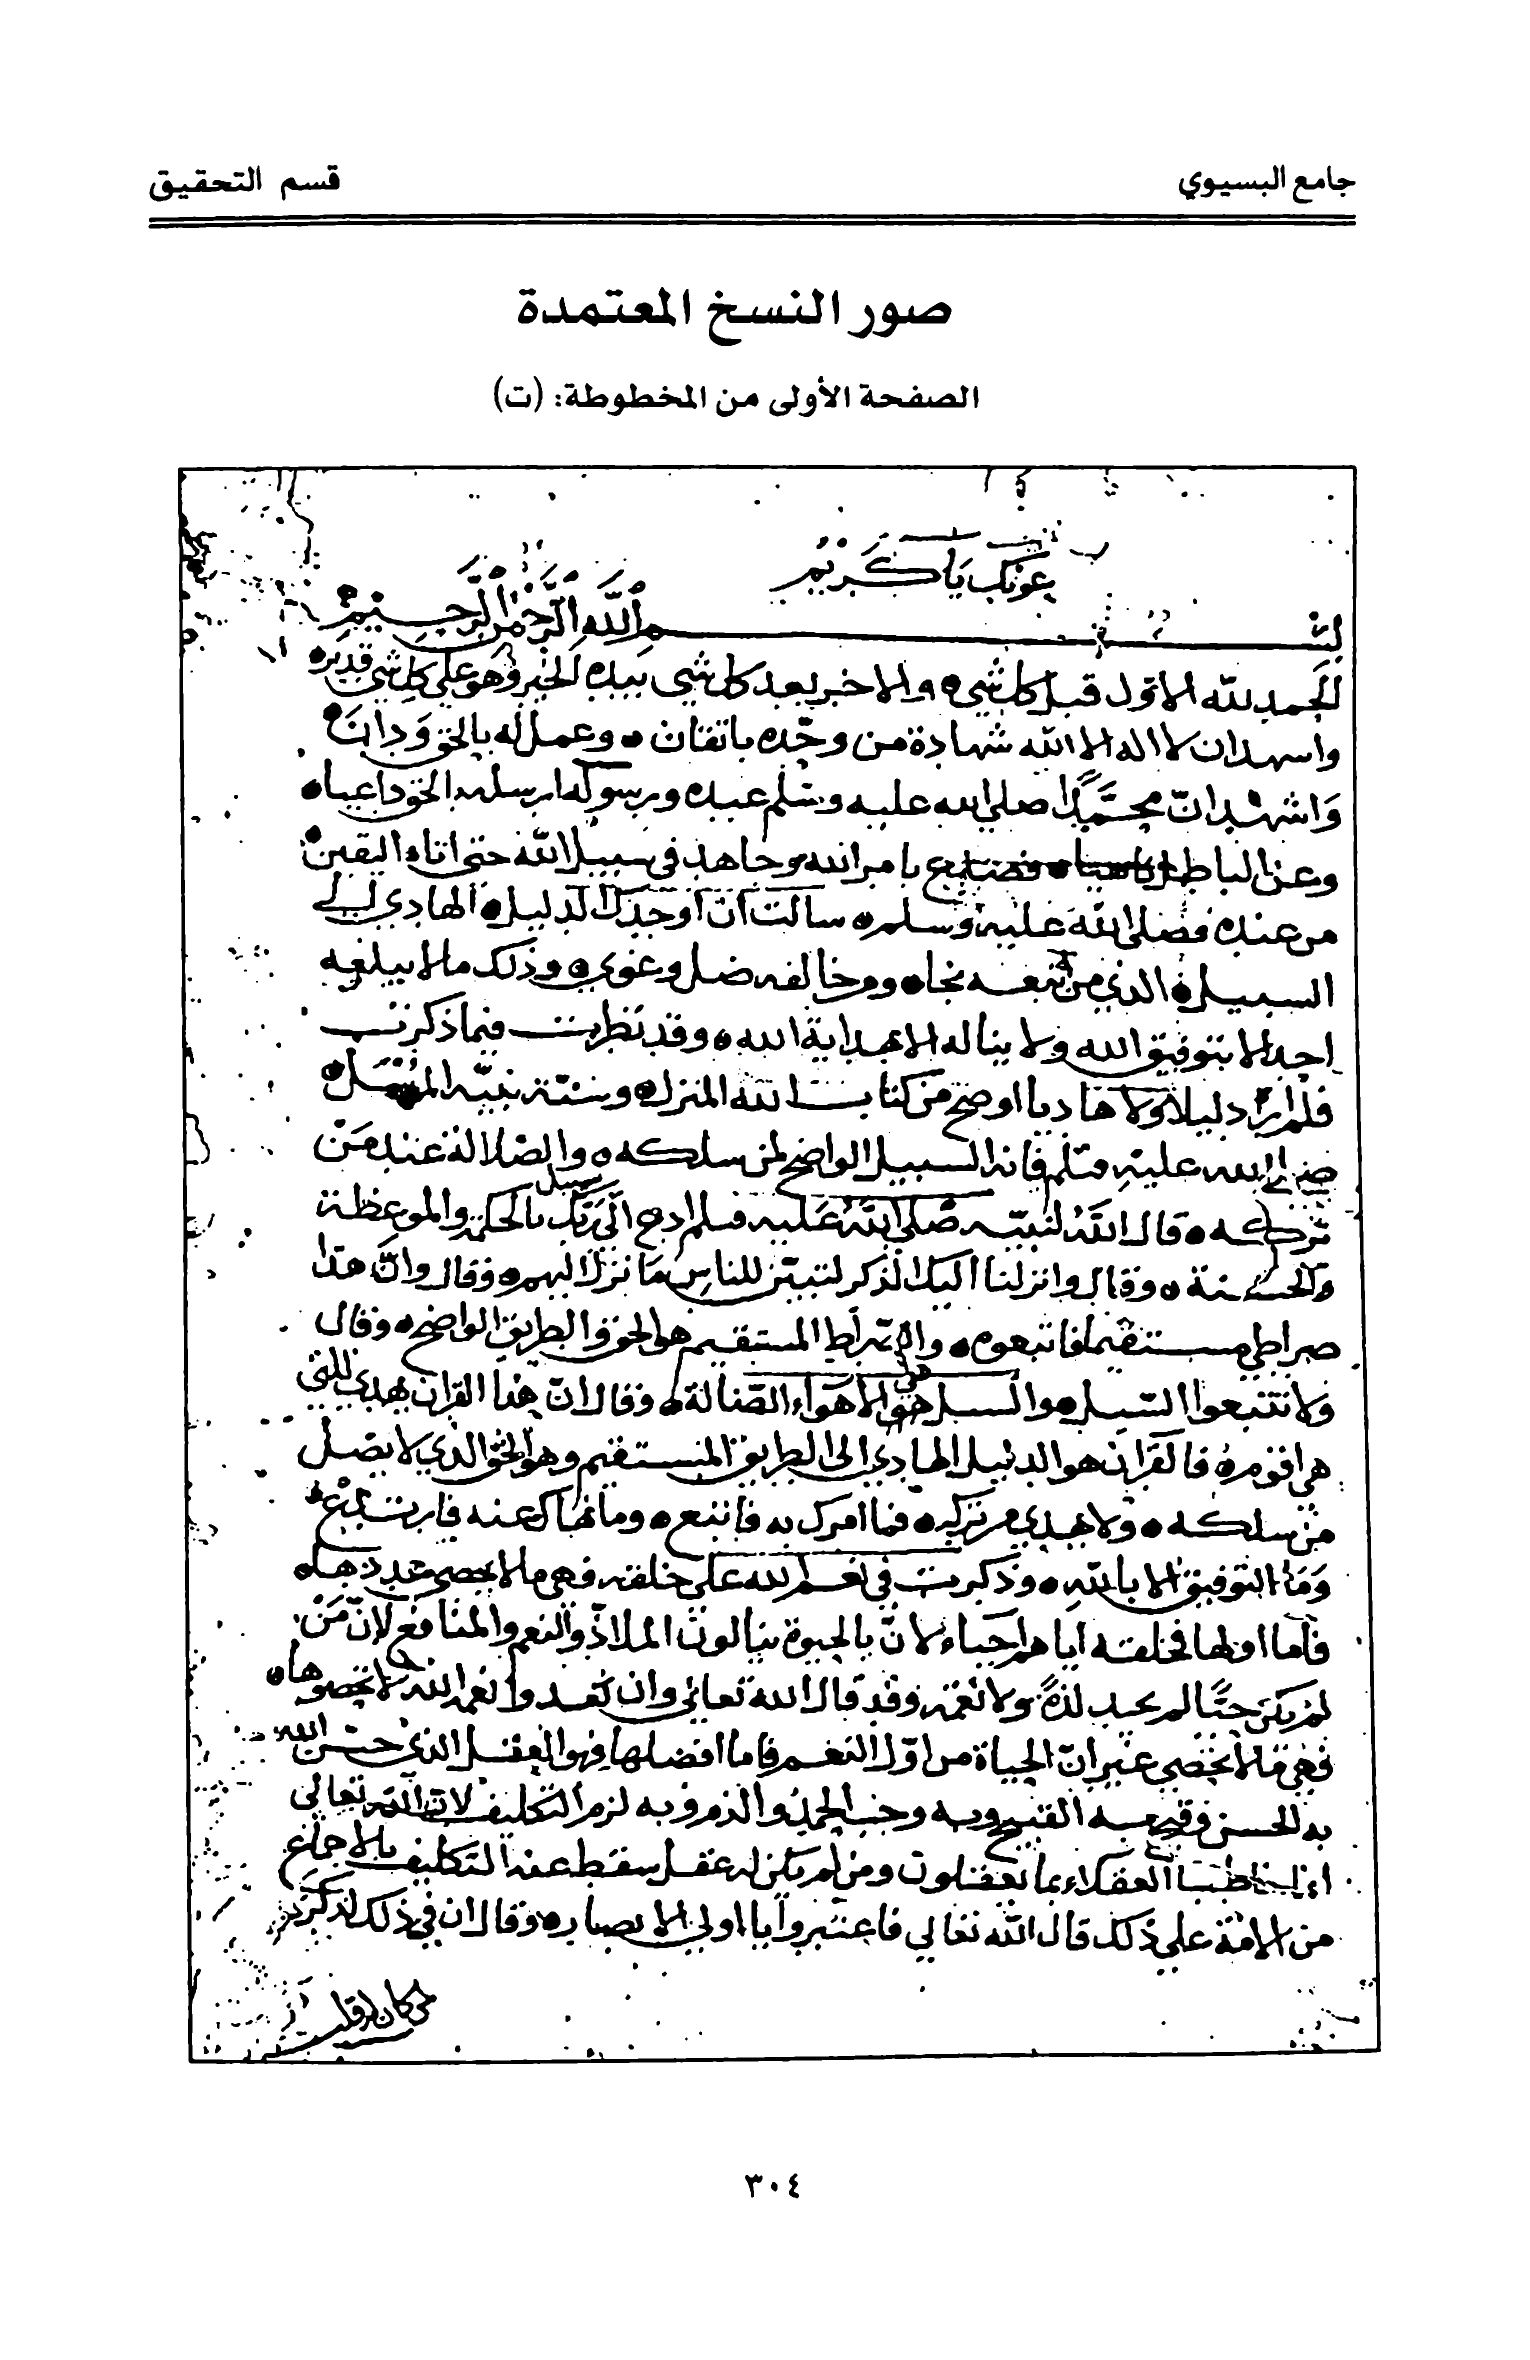 جامع البسيوي
قسم التحقيق
صور النسخ المعتمدة
الصفحة الأولى من المخطوطة: (ت)
بعونك يا كريم
بسم الله الرحمن الرحيم
الحمد لله الاول قبل كل شيء والاخر بعد كل شي بيده الخير وهو على كل شي قدير
واشهد ان لا اله الا الله شهادة من وحده باتقان وعمل له بالحق ودان
واشهد ان محمدا صلى الله عليه وسلم عبده ورسوله ارسله بالحق داعيا
وعن الباطل ناهيا فصدع بامر الله وجاهد في سبيل الله حتى اتاه اليقين
من عنده فصلى الله عليه وسلم سالت ان اوجدك الدليل الهادي الى
السبيل الذي من اتبعه نجا ومن خالفه ضل وغوي وذلك ما لا يبلغه
احد الا بتوفيق الله ولا يناله الا بهداية الله وقد نظرت فيما ذكرت
فلم ار دليلا ولا هاديا اوضح من كتاب الله المنزل وسنة نبيه المرسل
صلى الله عليه وسلم فانه السبيل الواضح لمن سلكه والضلالة عند من
تركه قال الله لنبيه صلى الله عليه وسلم ادع الى سبيل ربك بالحكمة والموعظة
والحسنة وقال وانزلنا اليك الذكر لتبين للناس ما نزل اليهم وقال وان هذا
صراطي مستقيما فاتبعوه والصراط المستقيم هو الحق والطريق الواضح وقال
ولا تتبعوا السبل والسبل هي الاهواء الضالة وقال ان هذا القران يهدي للتي
هي اقوم فالقران هو الدليل الهادي الى الطريق المستقيم وهو الحق الذي لا يضل
من سلكه ولا يهدي من تركه فما امرك به فاتبع وما نهاك عنه فارتدع
وما التوفيق الا بالله وذكرت في نعم الله على خلقه فهي ما لا يحصي عددها
فاما اولها فخلقه اياهم احياء لان بالحيوة ينالون الملاذ والنعم والمنافع لان من
لم يكن حيا لم يجد لذة ولا نعمة وقد قال الله تعالى وان تعدوا نعم الله لا تحصوها
فهي ما لا تحصي غير ان الحياة من اول النعم فاما افضلها فهو العقل الذي حسن الله
به الحسن وقبح به القبيح وبه وجب الحمد والذم وبه لزم التكليف لان الله تعالى
انما خاطب العقلاء بما يعقلون ومن لم يكن له عقل سقط عنه التكليف بالاجماع
من الامة على ذلك قال الله تعالى فاعتبروا يا اولي الابصار وقال ان في ذلك لذكرى
لمن كان له قلب
٣٠٤